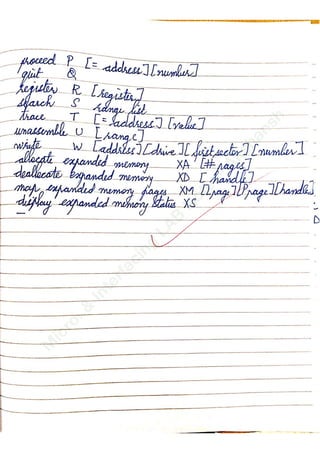 proceed P [= address] [number]
quit Q
register R [register]
search S range list
trace T [= address] [value]
unassemble U [range]
write W [address] [drive] [firstsector] [number]
allocate expanded memory XA [# pages]
deallocate expanded memory XD [handle]
map expanded memory pages XM [Lpage] [Ppage] [handle]
display expanded memory status XS